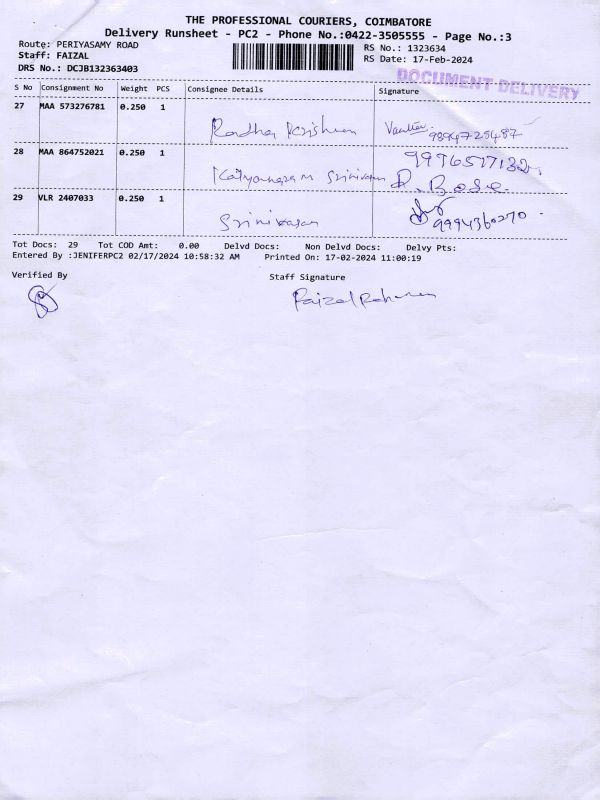 THE PROFESSIONAL COURIERS, COIMBATORE
Delivery Runsheet - PC2 - Phone No.:0422-3505555 - Page No.:3
Route: PERIYASAMY ROAD
RS No.: 1323634
Staff: FAIZAL
RS Date: 17-Feb-2024
DRS No.: DCJB132363403
DOCUMENT DELIVERY
S No Consignment No Weight PCS Consignee Details Signature
27 MAA 573276781 0.250 1 Radha Krishnan 9894725487
28 MAA 864752021 0.250 1 Kalyanaram Srinivasan R. Bose
29 VLR 2407033 0.250 1 Srinivasan 9994360270
Tot Docs: 29 Tot COD Amt: 0.00 Delvd Docs: Non Delvd Docs: Delvy Pts:
Entered By :JENIFERPC2 02/17/2024 10:58:32 AM Printed On: 17-02-2024 11:00:19
Verified By Staff Signature
Faizal Rahman